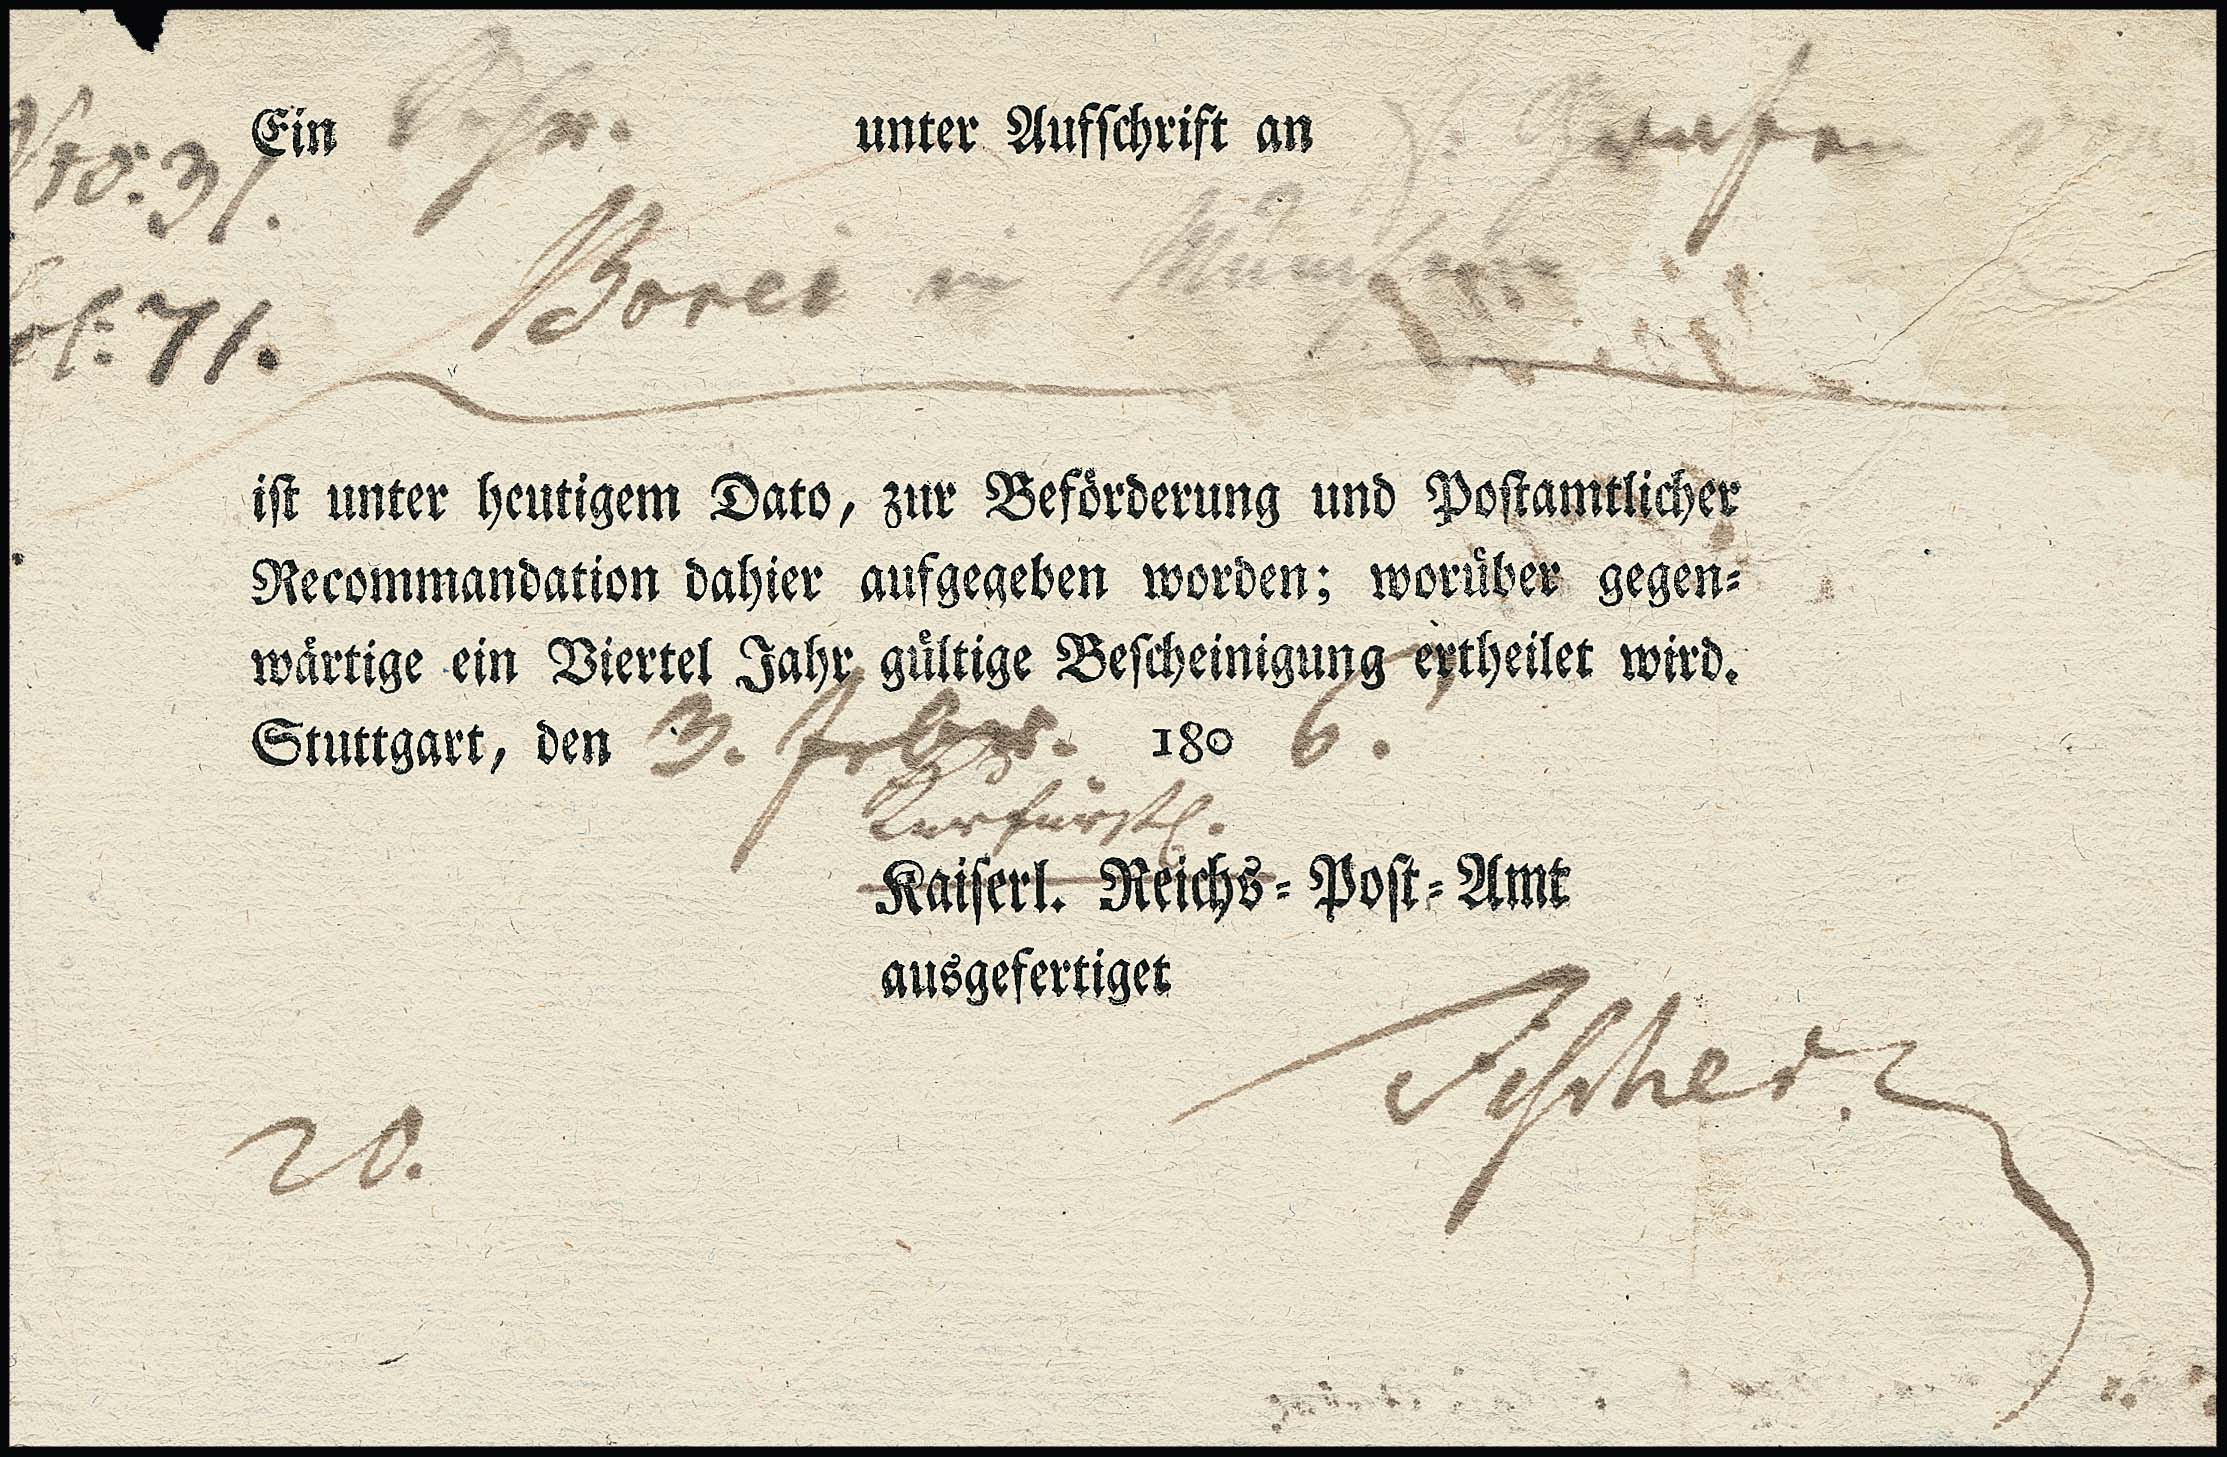 Ein Schr. unter Aufschrift an H. Grafen
Nro: 31.
Borei in München
fol: 71.
ist unter heutigem Dato, zur Beförderung und Postamtlicher
Recommandation dahier aufgegeben worden; worüber gegen-
wärtige ein Viertel Jahr gültige Bescheinigung ertheilet wird.
Stuttgart, den 3. Febr. 180 6.
Kurfürstl.
Kaiserl. Reichs-Post-Amt
ausgefertiget
Fischer.
20.